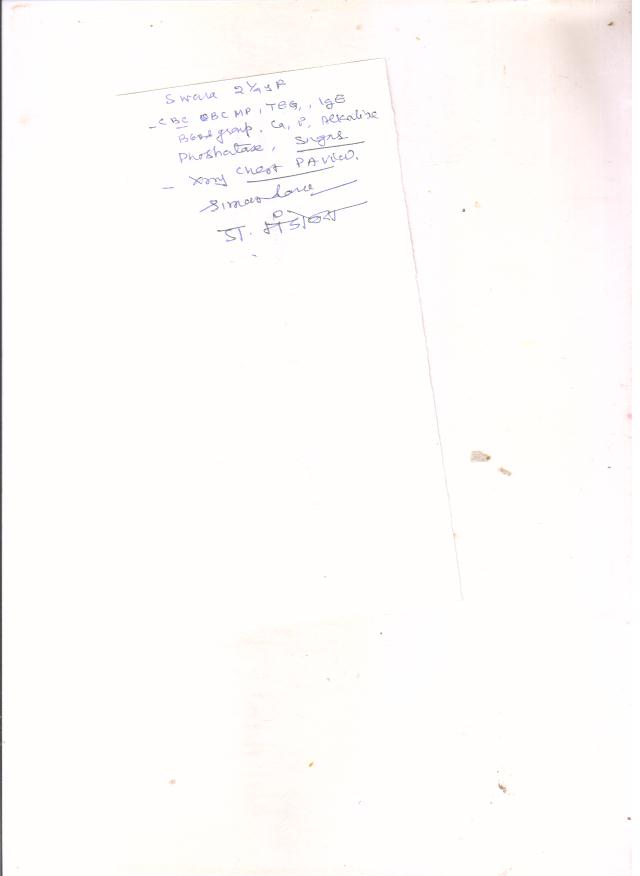 Swara 2½ yrs F
- CBC QBC MP, TEG, IgE
Blood group, Ca, P, Alkaline
Phoshatase, Sugrs
- Xray Chest PA view.
डॉ.